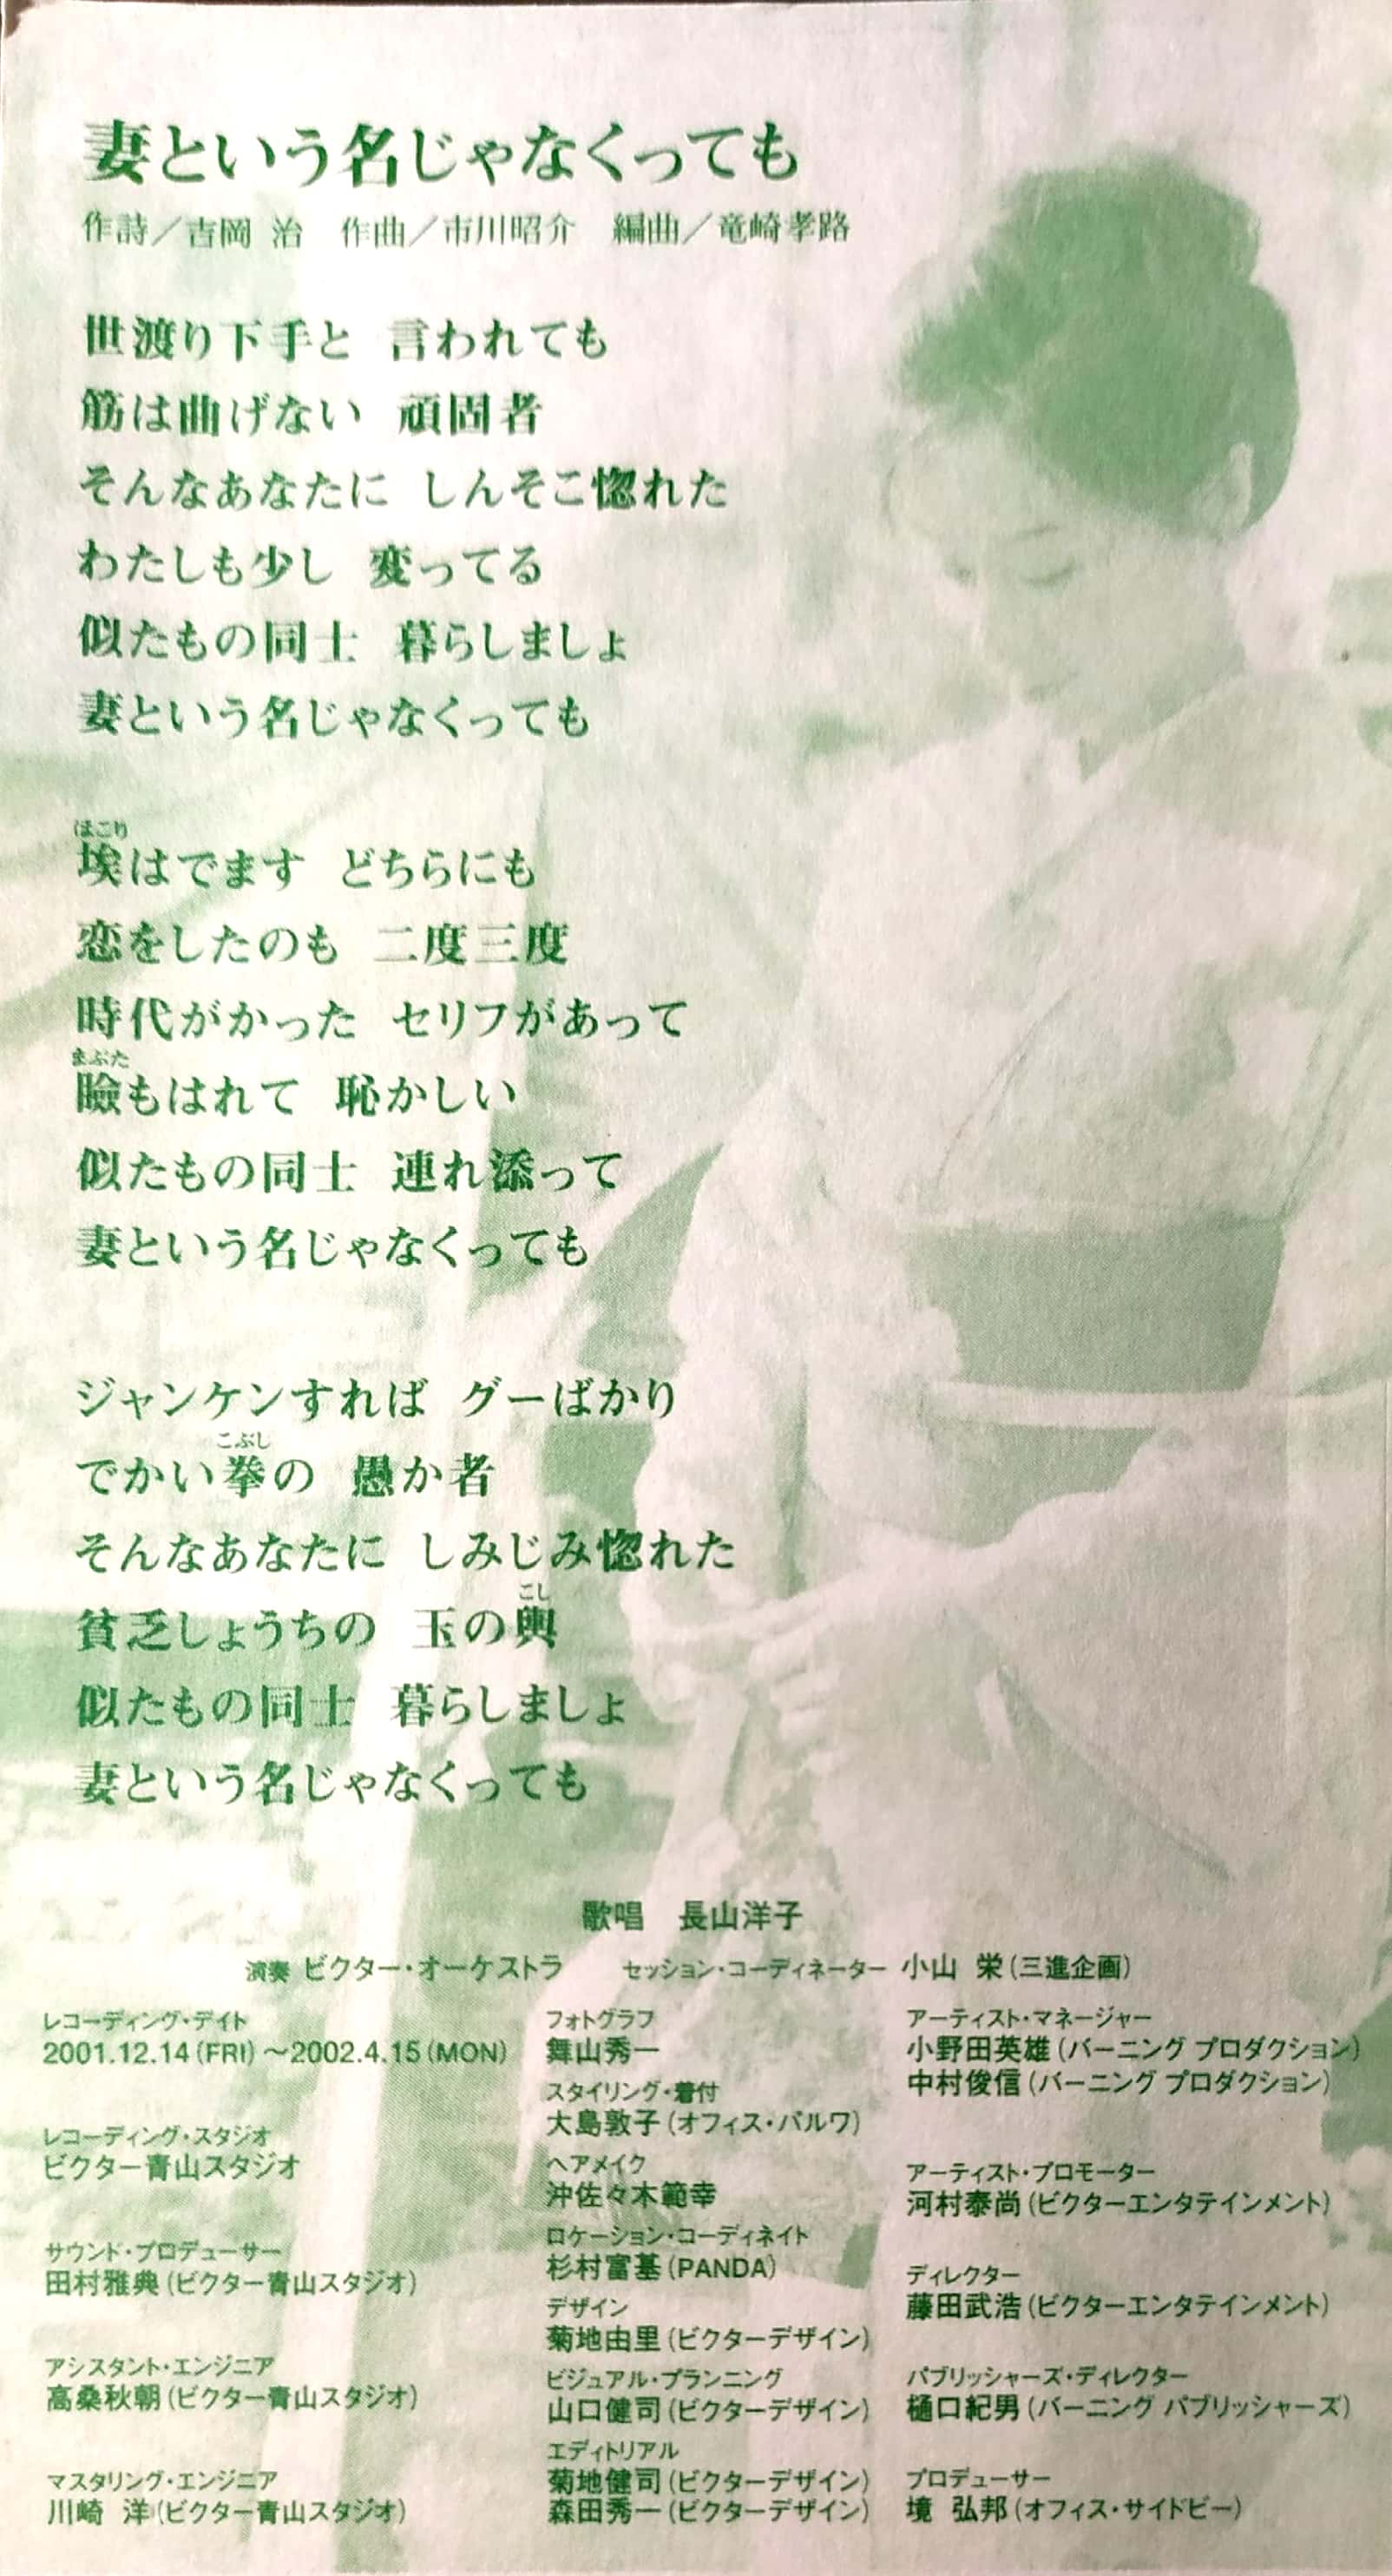 妻という名じゃなくっても
作詩／吉岡 治　作曲／市川昭介　編曲／竜崎孝路
世渡り下手と 言われても
筋は曲げない 頑固者
そんなあなたに しんそこ惚れた
わたしも少し 変ってる
似たもの同士 暮らしましょ
妻という名じゃなくっても
ほこり
埃はでます どちらにも
恋をしたのも 二度三度
時代がかった セリフがあって
まぶた
瞼もはれて 恥かしい
似たもの同士 連れ添って
妻という名じゃなくっても
ジャンケンすれば グーばかり
こぶし
でかい拳の 愚か者
そんなあなたに しみじみ惚れた
こし
貧乏しょうちの 玉の輿
似たもの同士 暮らしましょ
妻という名じゃなくっても
歌唱　長山洋子
演奏 ビクター・オーケストラ　セッション・コーディネーター 小山 栄(三進企画)
レコーディング・デイト
2001.12.14(FRI)〜2002.4.15(MON)
レコーディング・スタジオ
ビクター青山スタジオ
サウンド・プロデューサー
田村雅典(ビクター青山スタジオ)
アシスタント・エンジニア
高桑秋朝(ビクター青山スタジオ)
マスタリング・エンジニア
川崎 洋(ビクター青山スタジオ)
フォトグラフ
舞山秀一
スタイリング・着付
大島敦子(オフィス・バルワ)
ヘアメイク
沖佐々木範幸
ロケーション・コーディネイト
杉村富基(PANDA)
デザイン
菊地由里(ビクターデザイン)
ビジュアル・プランニング
山口健司(ビクターデザイン)
エディトリアル
菊地健司(ビクターデザイン)
森田秀一(ビクターデザイン)
アーティスト・マネージャー
小野田英雄(バーニング プロダクション)
中村俊信(バーニング プロダクション)
アーティスト・プロモーター
河村泰尚(ビクターエンタテインメント)
ディレクター
藤田武浩(ビクターエンタテインメント)
パブリッシャーズ・ディレクター
樋口紀男(バーニング パブリッシャーズ)
プロデューサー
境 弘邦(オフィス・サイドビー)